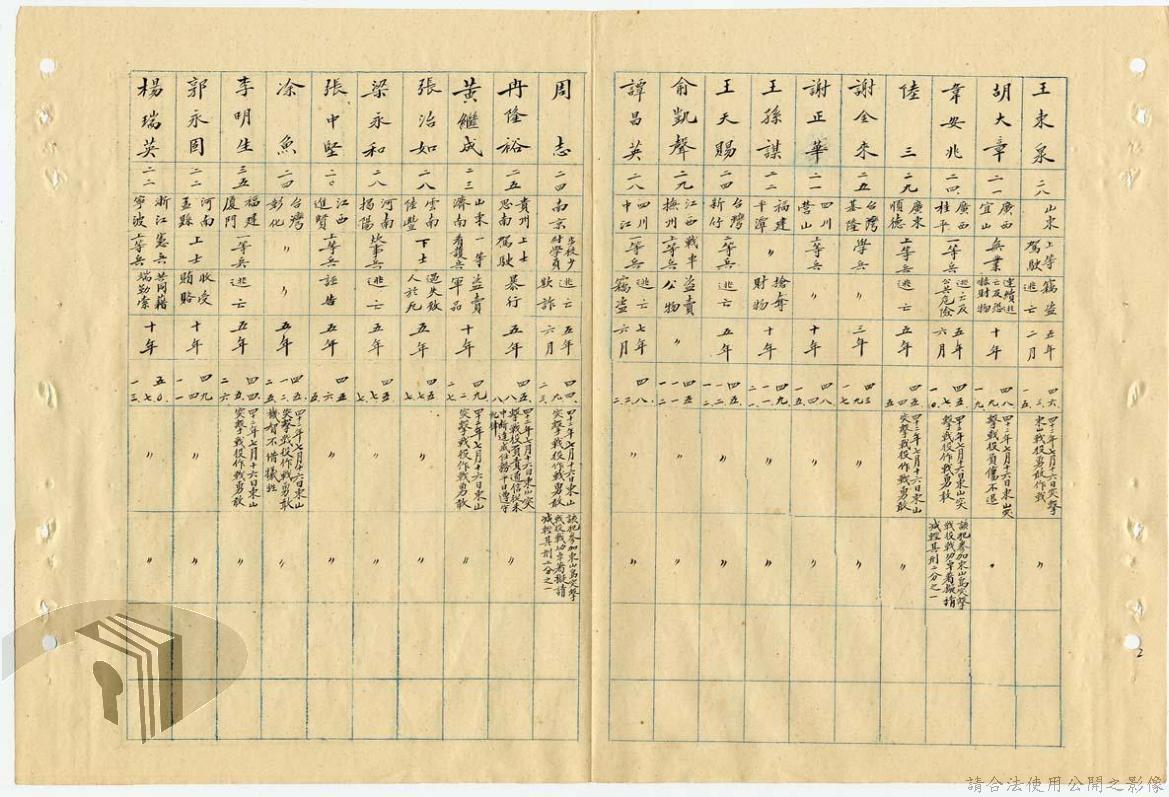 王東泉 二八 山東 上等駕駛 竊盜逃亡 五年二月 四六、三、五 四十二年七月十六日突擊東山戰役勇敢作戰 〃
胡大章 二一 廣西宜山 無業 連續逃亡及恐嚇財物 十年 四八、九、九 四十二年七月十六日東山突擊戰役負傷不退 〃
韋安兆 二四 廣西桂平 一等兵 逃亡及公共危險 五年六月 四五、七、一〇 四十二年七月十六日東山突擊戰役作戰勇敢 該犯參加東山島突擊戰役戰功卓著擬請減輕其刑二分之一
陸三 二九 廣東順德 上等兵 逃亡 五年 四四、四、五 四十二年七月十六日東山突擊戰役作戰勇敢
謝金來 二五 台灣基隆 學兵 〃 三年 四九、三 〃 〃
謝正華 二一 四川營山 上等兵 〃 十年 四八、四、一 〃 〃
王孫謀 二二 福建平潭 〃 搶奪財物 十年 四九、一 〃 〃
王天賜 二四 台灣新竹 二等兵 逃亡 五年 四五、一、二 〃 〃
俞凱聲 二九 江西撫州 戰車上等兵 盜賣公物 〃 四五、一、一 〃 〃
譚昌英 二八 四川中江 一等兵 竊盜 七年六月 四八、二 〃 〃
周志 二四 南京 逃亡欺詐 五年六月 四九、三 四十二年七月十六日東山突擊戰役作戰勇敢 該犯參加東山島突擊戰役戰功卓著擬請減輕其刑二分之一
冉隆裕 二五 貴州思南 上士駕駛 暴行 五年 四五、八、八 四十二年七月十六日東山突擊戰役負責通信從未中斷達成任務平日遵守紀律 〃
黃繼成 二三 山東濟南 一等看護兵 盜賣軍品 十年 四九、七、二 四十二年七月十六日東山突擊戰役作戰勇敢 〃
張治如 二八 雲南陸豐 下士 過失致人於死 五年 四五、七 〃 〃
梁永和 二八 河南揭陽 炊事兵 逃亡 五年 四五、七、七 〃 〃
張中堅 二〇 江西進賢 上等兵 誣告 五年 四五、六、五 〃 〃
涂魚 二四 台灣彰化 〃 〃 五年 四五、一、五 四十二年七月十六日東山突擊戰役作戰勇敢機智不惜犧牲 〃
李明生 三五 福建廈門 一等兵 逃亡 五年 四四、六 四十二年七月十六日東山突擊戰役作戰勇敢 〃
郭永固 二二 河南孟縣 上士 收受賄賂 十年 四九、四、一 〃 〃
楊瑞英 二二 浙江寧波 憲兵上等兵 共同藉端勒索 十年 五〇、七、三 〃 〃
2
請合法使用公開之影像